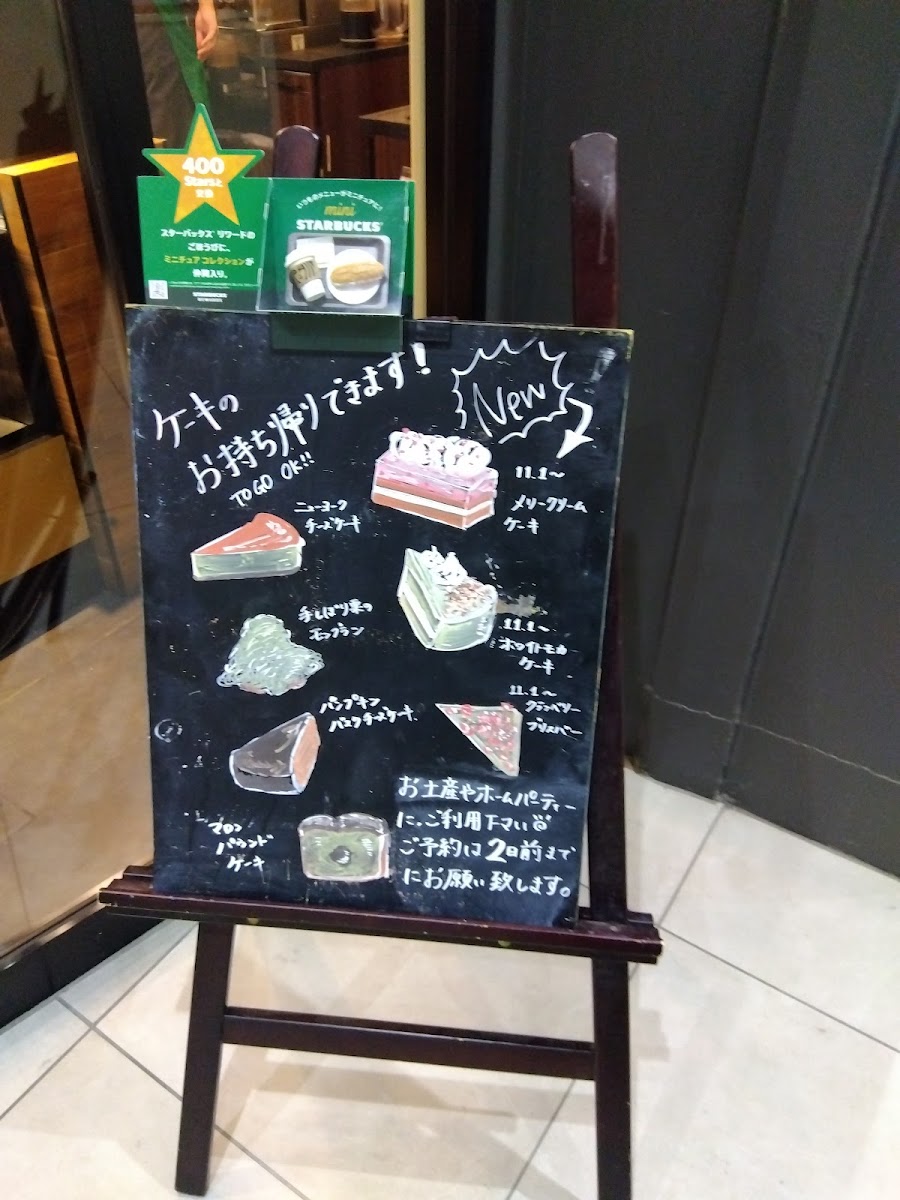 400
Starsと
交換
スターバックス® リワードの
ごほうびに、
ミニチュア コレクションが
仲間入り。
STARBUCKS
REWARDS
いつものメニューがミニチュアに!
mini
STARBUCKS®
ケーキの
お持ち帰りできます!
TO GO OK!!
New
11.1〜
メリークリーム
ケーキ
ニューヨーク
チーズケーキ
手しぼり栗の
モンブラン
11.1〜
ホワイトモカ
ケーキ
パンプキン
バスクチーズケーキ
11.1〜
クランベリー
ブリスバー
マロン
パウンド
ケーキ
お土産やホームパーティー
に、ご利用下さい
ご予約は2日前まで
にお願い致します。